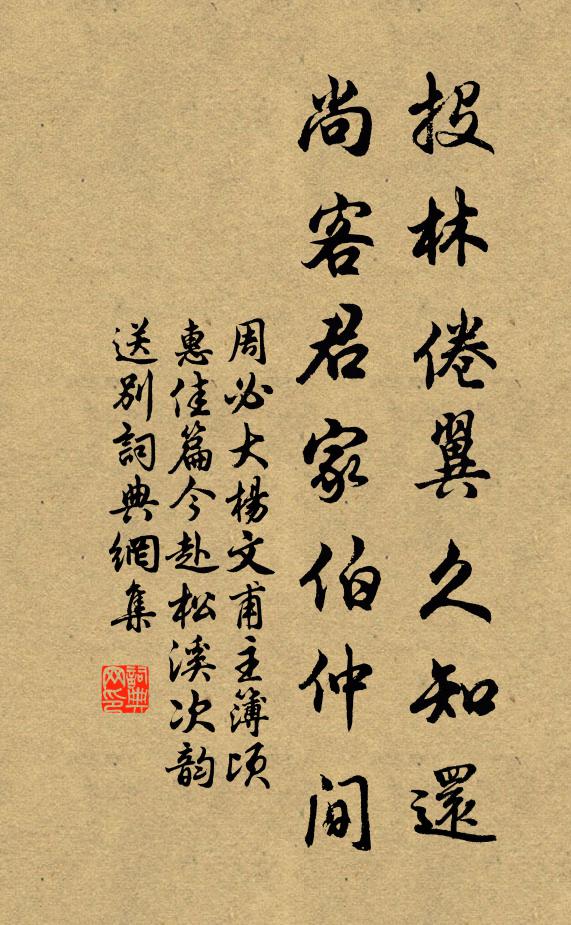 投林倦翼久知還
尚客君家伯仲間
周必大楊文甫主簿頃
惠佳篇今赴松溪次韵
送別詞典網集
詞典
网印